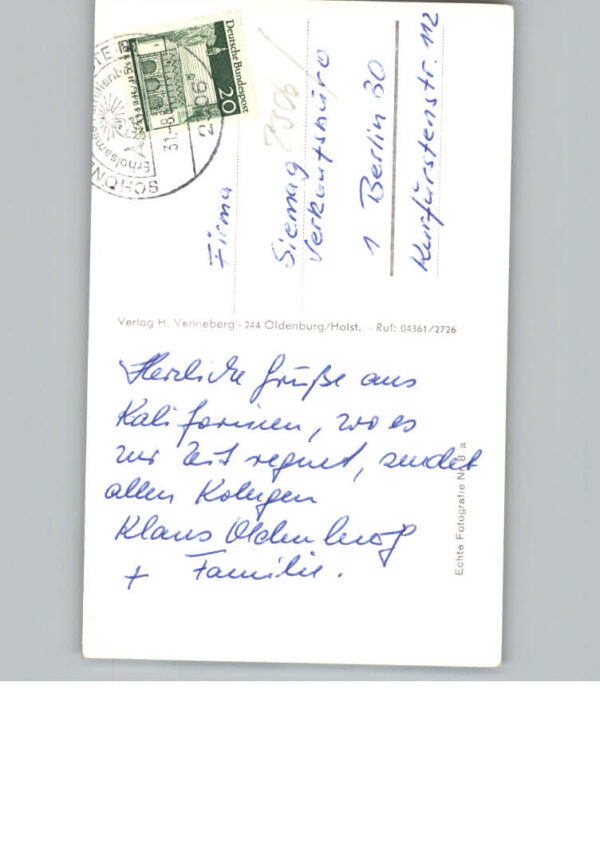 Deutsche Bundespost
20
Firma
Siemag
Verkaufsbüro
1 Berlin 30
Kurfürstenstr. 112
Verlag H. Venneberg · 244 Oldenburg/Holst. · Ruf: 04361/2726
Herzliche Grüße aus
Kalifornien, wo es
zur Zeit regnet, sendet
allen Kollegen
Klaus Oldenburg
+ Familie.
Echte Fotografie Nr. 8 a